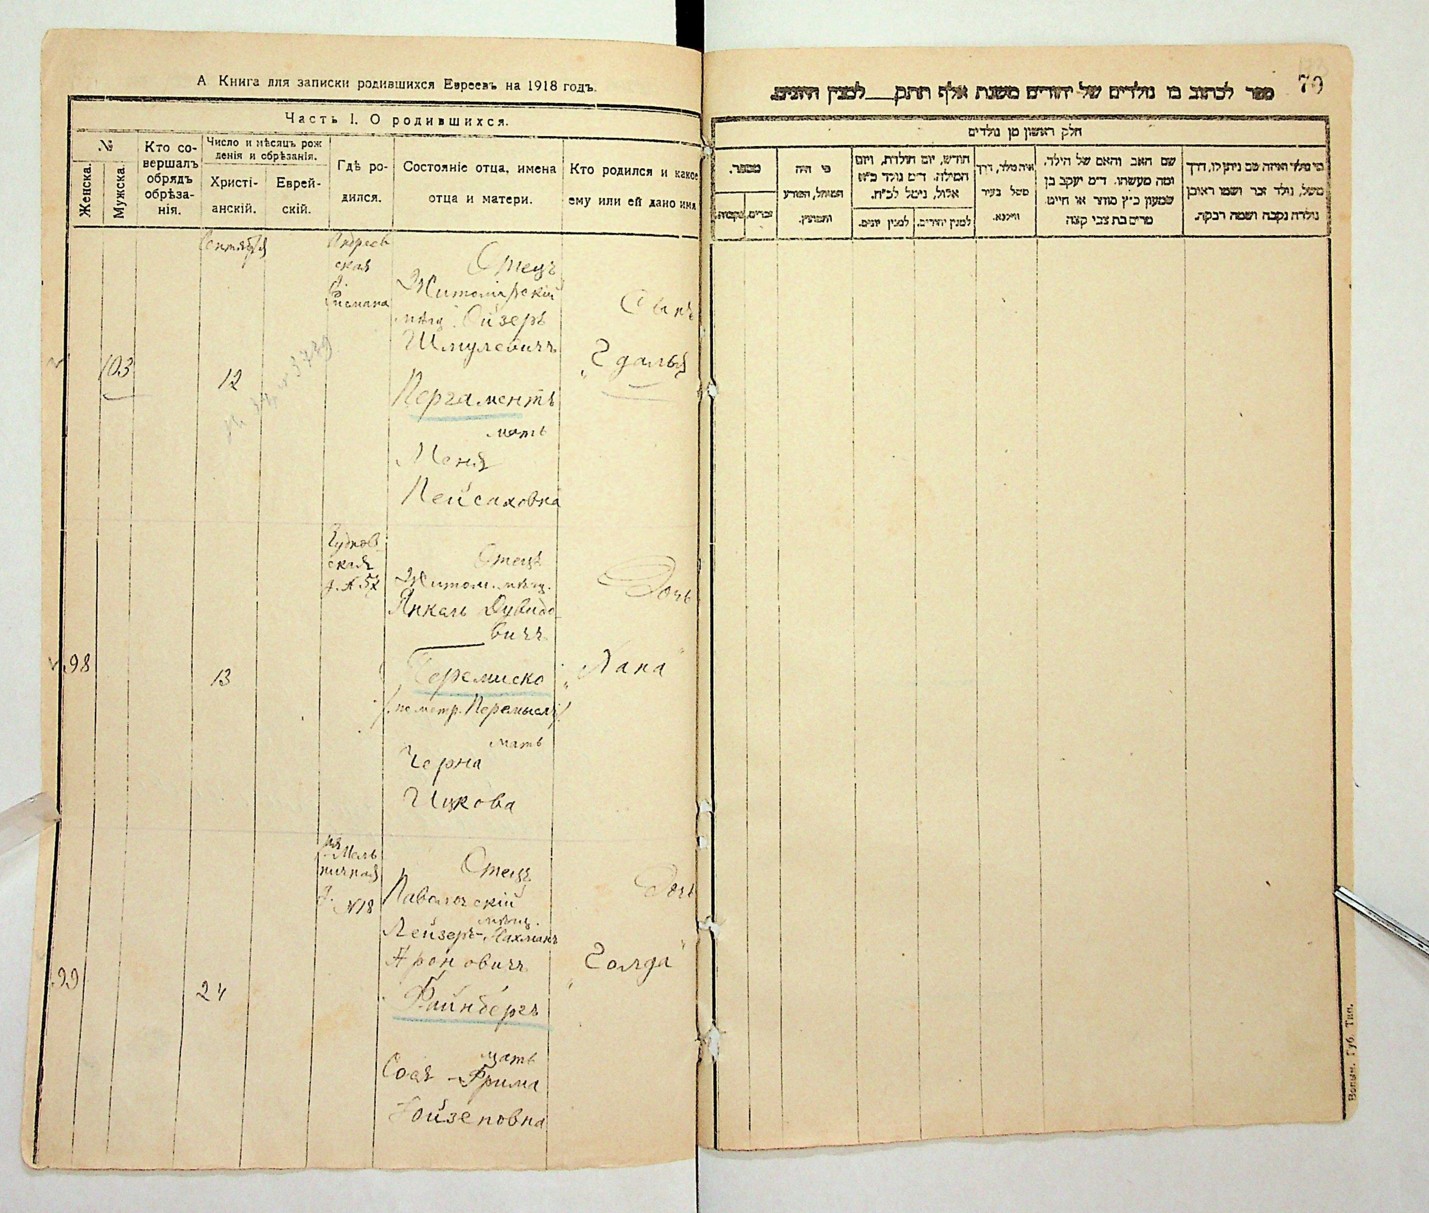 А Книга для записки родившихся Евреевъ на 1918 годъ.
Часть I. О родившихся.
№
Женска.
Мужска.
Кто со-
вершалъ
обрядъ
обрѣза-
нія.
Число и мѣсяцъ рож
денія и обрѣзанія.
Христі-
анскій.
Еврей-
скій.
Гдѣ ро-
дился.
Состояніе отца, имена
отца и матери.
Кто родился и какое
ему или ей дано имя
Сентября
103
12
Андреев
ская
д.
Отецъ
Житомірскій
мѣщ. Ойзеръ
Шмулевичъ
Пергаментъ
мать
Меня
Пейсаховна
Сынъ
"Гдалья
98
13
Чудновс
ская
д. № 57
Отецъ
Житом. мѣщ.
Янкель Дувидо
вичъ
Перемиско
/по метр. Перемыслъ/
мать
Черна
Ицкова
Дочь
"Хана"
99
24
Мель
ничная
д. №18
Отецъ
Паволочскій
мѣщ.
Лейзеръ-Нахманъ
Ароновичъ
Файнбергъ
мать
Сося-Фрима
Йойзеповна
Дочь
"Голда"
79
ספר לכתוב בו נולדים של יהודים משנת אלף תתק למנין היונים.
חלק ראשון מן נולדים
מספר.
נקבות.
זכרים.
מי היה
המוהל, הפורע
והמוצץ.
חודש, יום הולדת, ויום
המילה. ד״מ נולד כ״א
אלול, נימול לכ״ח.
למנין יונים.
למנין יהודים.
איה נולד, דרך
משל בעיר
ווילנא.
שם האב והאם של הילד.
ומה מעשהו. ד״מ יעקב בן
שמעון כ״ץ סוחר או חייט.
מרים בת צבי קצה
מי נולד ואיזה שם ניתן לו, דרך
משל, נולד זכר ושמו ראובן
נולדה נקבה ושמה רבקה.
Волын. Губ. Тип.